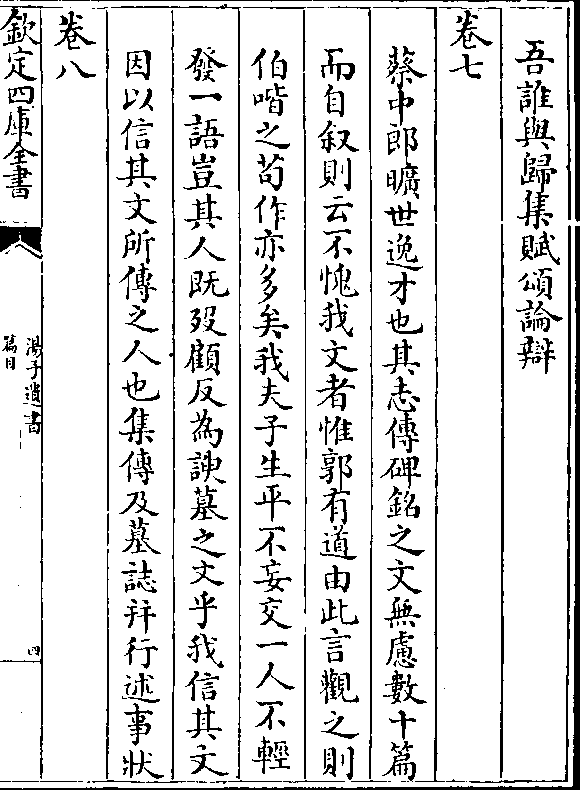 吾誰與歸集賦頌論辯
卷七
蔡中郎曠世逸才也其志傳碑銘之文無慮數十篇
而自叙則云不愧我文者惟郭有道由此言觀之則
伯喈之茍作亦多矣我夫子生平不妄交一人不輕
發一語豈其人既歿顧反為諛墓之文乎我信其文
因以信其文所傳之人也集傳及墓誌并行述事狀
卷八
欽定四庫全書
湯子遺書
篇目
四